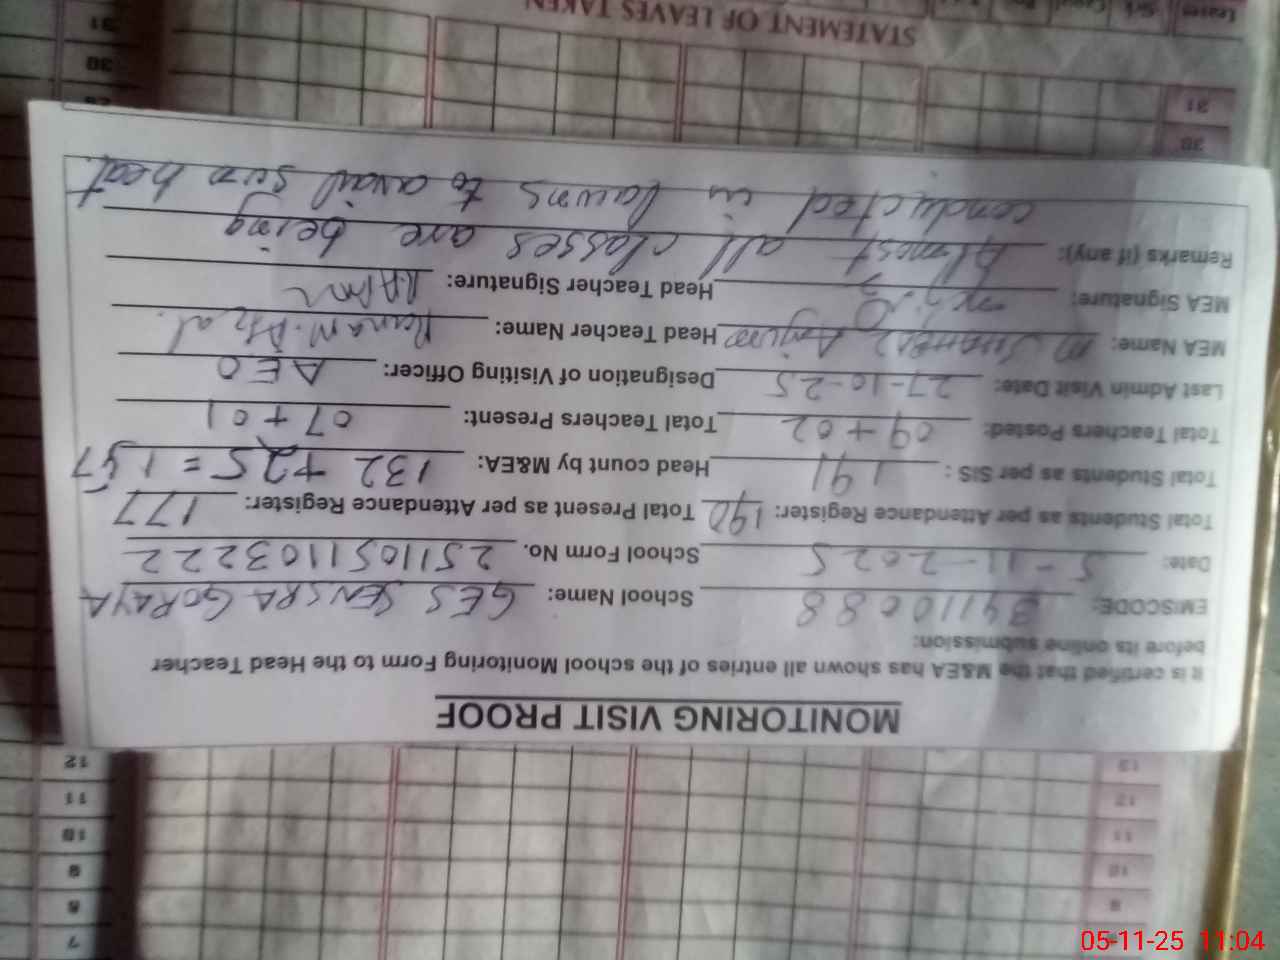 MONITORING VISIT PROOF
It is certified that the M&EA has shown all entries of the school Monitoring Form to the Head Teacher
before its online submission:
EMISCODE: 34110088 School Name: GES SENSRA GORAYA
Date: 5-11-2025 School Form No. 2511051103222
Total Students as per Attendance Register: 190 Total Present as per Attendance Register: 177
Total Students as per SIS : 191 Head count by M&EA: 132 + 25 = 157
Total Teachers Posted: 09 + 02 Total Teachers Present: 07 + 01
Last Admin Visit Date: 27-10-25 Designation of Visiting Officer: AEO
MEA Name: M Anjum Head Teacher Name: Rana M. Afzal.
MEA Signature: Head Teacher Signature:
Remarks (if any): Almost all classes are being
conducted in lawns to avail sun heat.
STATEMENT OF LEAVES TAKEN
7
8
9
10
11
12
30
31
9
10
11
12
13
30
31
05-11-25 11:04